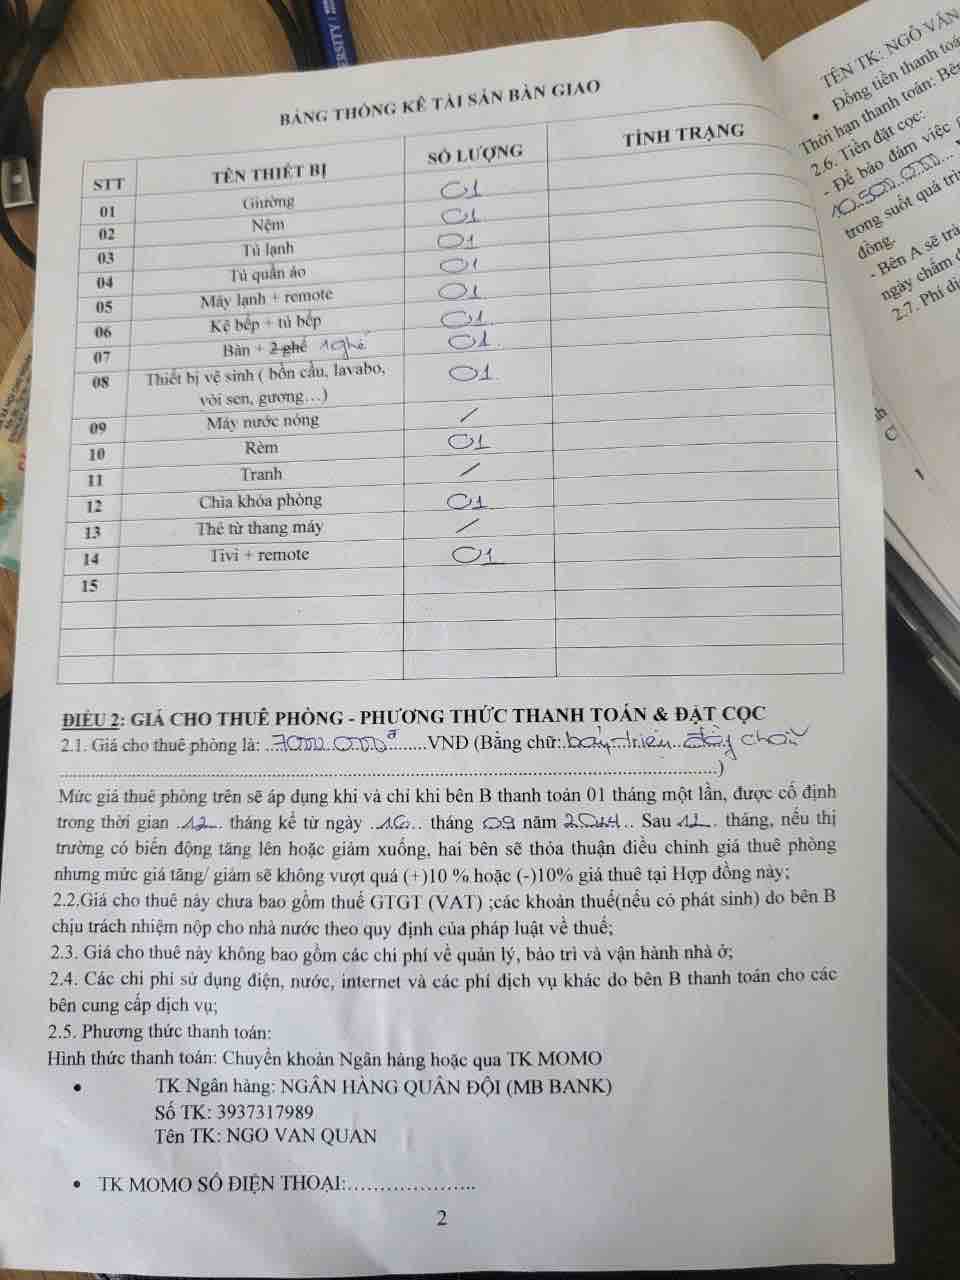 BẢNG THỐNG KÊ TÀI SẢN BÀN GIAO
STT TÊN THIẾT BỊ SỐ LƯỢNG TÌNH TRẠNG
01 Giường 01
02 Nệm 01
03 Tủ lạnh 01
04 Tủ quần áo 01
05 Máy lạnh + remote 01
06 Kệ bếp + tủ bếp 01
07 Bàn + 2 ghế 1 ghế 01
08 Thiết bị vệ sinh ( bồn cầu, lavabo, 01
vòi sen, gương…)
09 Máy nước nóng /
10 Rèm 01
11 Tranh /
12 Chìa khóa phòng 01
13 Thẻ từ thang máy /
14 Tivi + remote 01
15
ĐIỀU 2: GIÁ CHO THUÊ PHÒNG - PHƯƠNG THỨC THANH TOÁN & ĐẶT CỌC
2.1. Giá cho thuê phòng là: 7.000.000đ VNĐ (Bằng chữ: bảy triệu đồng chẵn
)
Mức giá thuê phòng trên sẽ áp dụng khi và chỉ khi bên B thanh toán 01 tháng một lần, được cố định
trong thời gian ..12.. tháng kể từ ngày ..16.. tháng 09 năm 2024.. Sau 12.. tháng, nếu thị
trường có biến động tăng lên hoặc giảm xuống, hai bên sẽ thỏa thuận điều chỉnh giá thuê phòng
nhưng mức giá tăng/ giảm sẽ không vượt quá (+)10 % hoặc (-)10% giá thuê tại Hợp đồng này;
2.2.Giá cho thuê này chưa bao gồm thuế GTGT (VAT) ;các khoản thuế(nếu có phát sinh) do bên B
chịu trách nhiệm nộp cho nhà nước theo quy định của pháp luật về thuế;
2.3. Giá cho thuê này không bao gồm các chi phí về quản lý, bảo trì và vận hành nhà ở;
2.4. Các chi phí sử dụng điện, nước, internet và các phí dịch vụ khác do bên B thanh toán cho các
bên cung cấp dịch vụ;
2.5. Phương thức thanh toán:
Hình thức thanh toán: Chuyển khoản Ngân hàng hoặc qua TK MOMO
• TK Ngân hàng: NGÂN HÀNG QUÂN ĐỘI (MB BANK)
Số TK: 3937317989
Tên TK: NGO VAN QUAN
• TK MOMO SỐ ĐIỆN THOẠI:....................
2
TÊN TK: NGÔ VĂN
• Đồng tiền thanh
Thời hạn thanh toán: Bên
2.6. Tiền đặt cọc:
- Để bảo đảm việc
10.500.000...
trong suốt quá
đồng.
- Bên A sẽ
ngày chấm
2.7. Phí